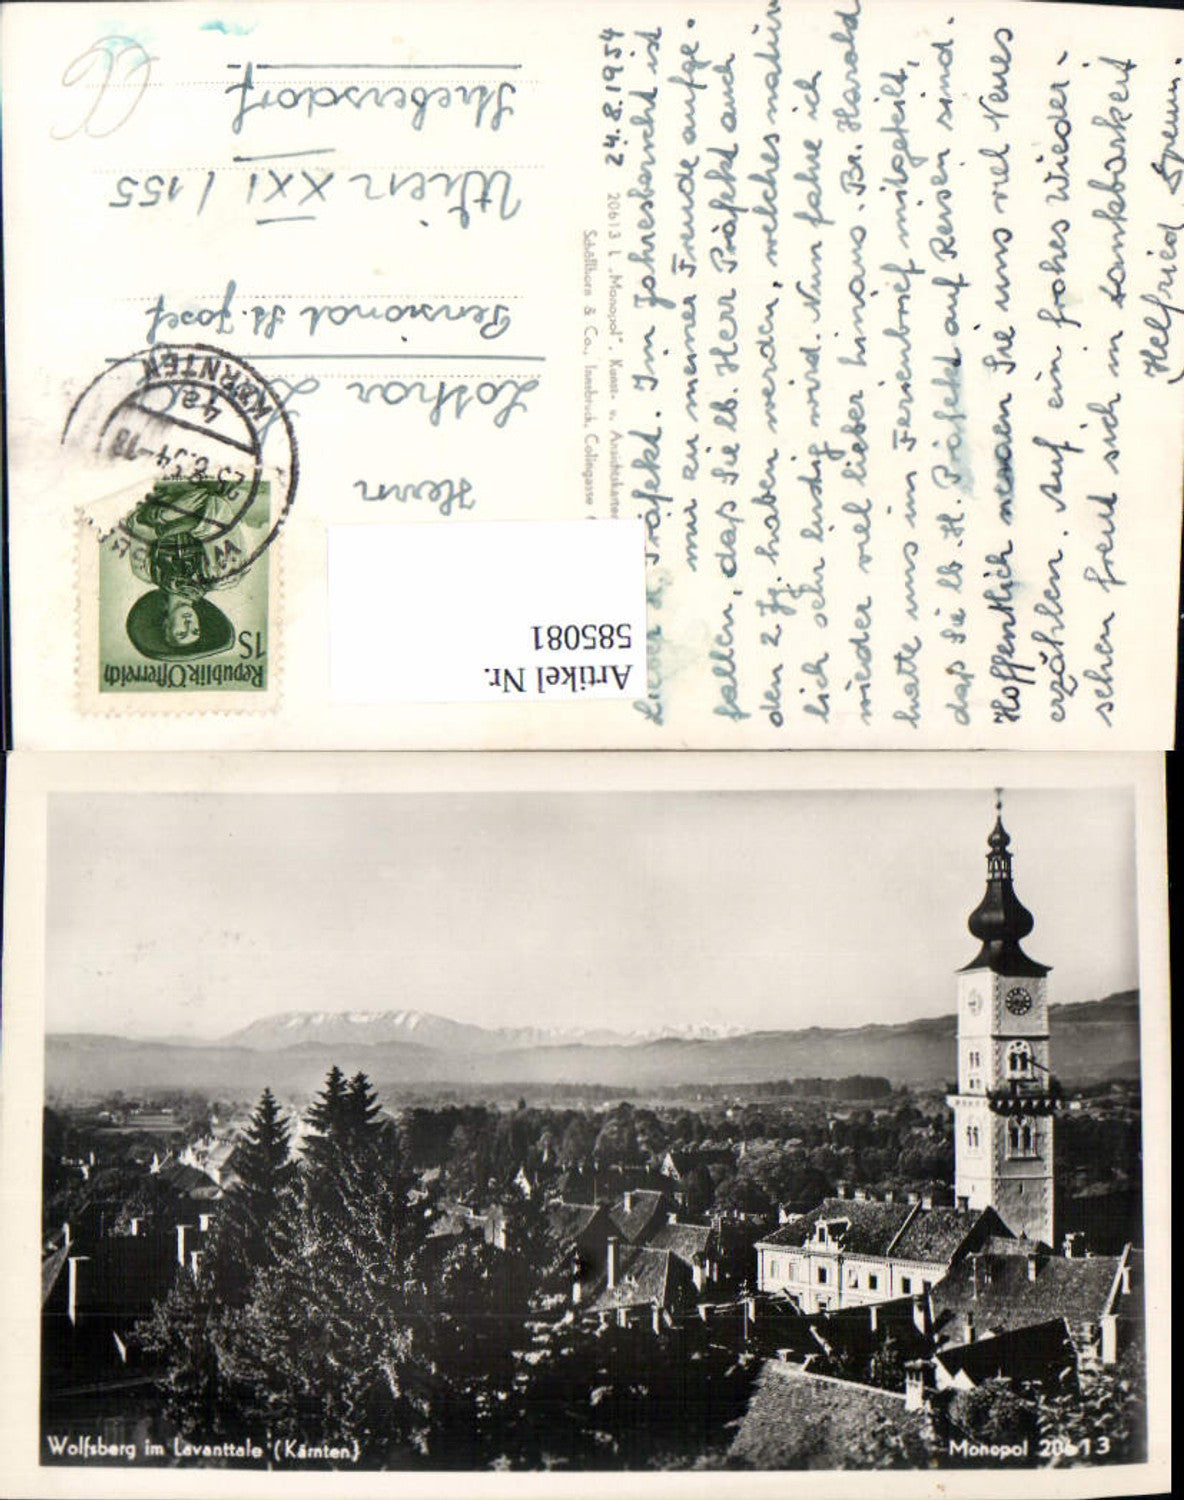 24.8.1954
Lieber H. Präfekt. Im Jahresbericht ist
mir zu meiner Freude aufge-
fallen, daß Sie lb. Herr Präfekt auch
den 2 Jg. haben werden, welches natür
lich sehr lustig wird. Nun fahre ich
wieder viel lieber hinaus. Br. Harold
hatte uns im Ferienbrief mitgeteilt,
daß Sie lb. H. Präfekt auf Reisen sind.
Hoffentlich Sie uns viel Neues
erzählen. Auf ein frohes Wieder-
sehen freut sich in Dankbarkeit
Helfried
20613 L „Monopol", Kunst- u. Ansichtskarten
Schöllhorn & Co., Innsbruck, Colingasse
Herrn
Lothar
Pensionat St. Josef
Wien XXI / 155
Strebersdorf
Republik Österreich
1S
KÄRNTEN
25.8.54-18
Artikel Nr.
585081
Wolfsberg im Lavanttale (Kärnten)
Monopol 20613